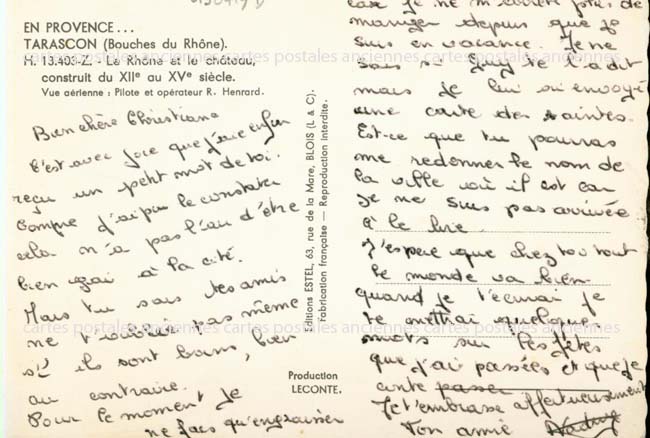 EN PROVENCE...
TARASCON (Bouches du Rhône).
H. 13.403-Z. - Le Rhône et le château,
construit du XIIe au XVe siècle.
Vue aérienne : Pilote et opérateur R. Henrard.
Bien chère Christiane
C'est avec joie que j'ai enfin
reçu un petit mot de toi.
Comme j'ai pu le constater
cela n'a pas l'air d'être
bien gai à la cité.
Mais tu sais tes amis
ne t'oublie pas même
s'ils sont loin, bien
au contraire.
Pour le moment je
ne fais qu'engraisser
Editions ESTEL, 63, rue de la Mare, BLOIS (L & C).
Fabrication française — Reproduction Interdite.
Production
LECONTE.
car je ne m'arrête plus de
manger depuis que je
suis en vacance. Je ne
sais si Guy te l'a dit
mais je lui ai envoyé
une carte des saintes.
Est-ce que tu pourras
me redonner le nom de
la ville où il est car
je ne suis pas arrivée
à le lire.
J'espère que chez toi tout
le monde va bien
quand je t'écrirai je
te mettrai quelques
mots sur les fêtes
que j'ai passées et que je
Je t'embrasse affectueusement
Ton amie
cartes postales anciennes cartes postales anciennes cartes postales anciennes
cartes postales anciennes cartes postales anciennes cartes postales anciennes